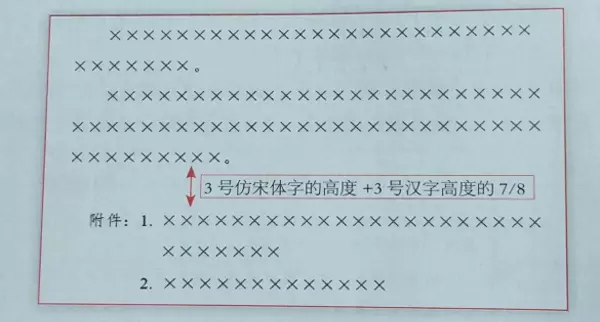 ××××××××××××××××××××××××
×××××××。
××××××××××××××××××××××××
××××××××××××××××××××××××××
×××××××××。
3号仿宋体字的高度+3号汉字高度的7/8
附件：1. ×××××××××××××××××××××
×××××××
2. ×××××××××××××